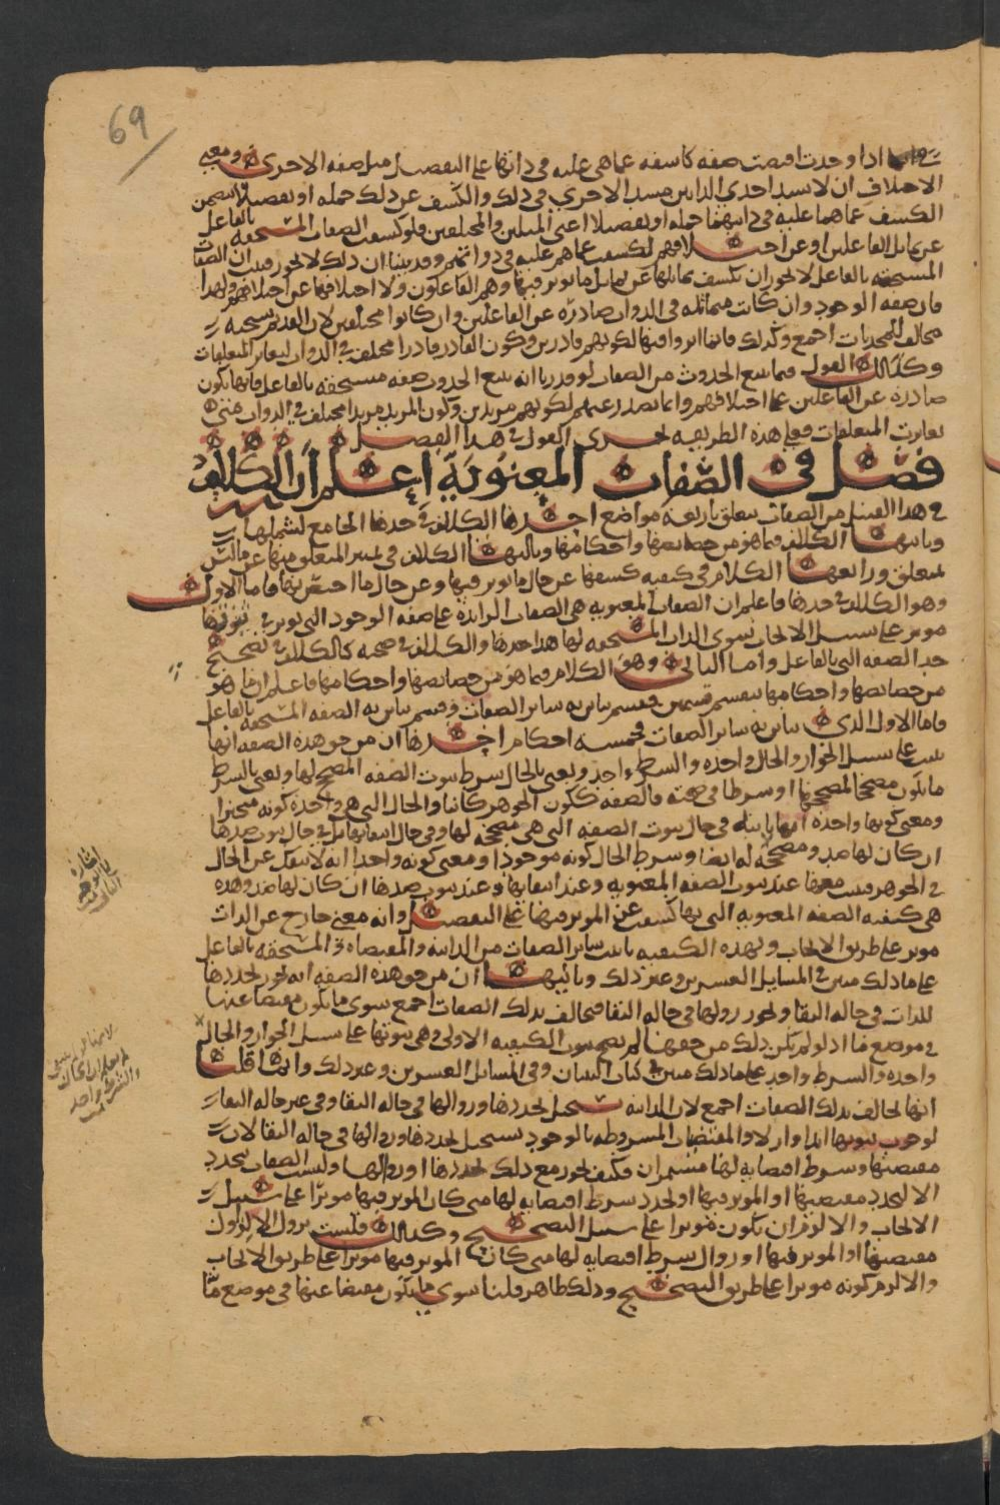 69
اذا وجدت اقتضت صفه كاشفه عما هي عليه في ذاتها على التفصيل مثل صفه الاخرى ومعنى
الاختلاف ان لا تسد احدى الذاتين مسد الاخرى في ذلك والكشف عن ذلك جمله او تفصيلا
الكشف عما هما عليه في ذاتيهما جمله او تفصيلا اعني المثلين والمختلفين فلو كشفت الصفات المستحقه بالفاعل
عن تماثل الفاعلين او عن اختلافهم لكشفت عما هم عليه في ذواتهم وقد بينا ان ذلك لا يجوز
المستحقه بالفاعل لا يجوز ان تكشف بتماثلها عن تماثل ما يوثر فيها وهم الفاعلون ولا اختلافها عن اختلافهم ولهذا
فان صفه الوجود وان كانت متماثله في الذوات صادره عن الفاعلين وان كانوا مختلفين لان القديم سبحنه
مخالف للمحدثات اجمع وكذلك فانما اثروا فيها لكونهم قادرين وكون القادر قادرا مختلف في الذوات لتغاير المتعلقات
وكذلك القول فيما يتبع الحدوث من الصفات لو قدرنا انه يتبع الحدوث صفه مستحقه بالفاعل فانها تكون
صادره عن الفاعلين على اختلافهم وانما تصدر عنهم لكونهم مريدين وكون المريد مريدا مختلف في الذوات متى
تغايرت المتعلقات فعلى هذه الطريقه يجرى القول في هذا الفصل
فصل في الصفات المعنوية اعلم ان الكلام
في هذا القبيل من الصفات يتعلق باربعه مواضع احدها الكلام في حدها الجامع لشملها
وثانيها الكلام فيما هو من خصائصها واحكامها وثالثها الكلام في تمييز المتعلق منها عن ما ليس
بمتعلق ورابعها الكلام في كيفيه كشفها عن حال ما يوثر فيها وعن حال ما اختص بها فاما الاول
وهو الكلام في حدها فاعلم ان الصفات المعنويه هي الصفات الزائده على صفه الوجود التي يوثر في ثبوتها
موثر على سبيل الايجاب سوى الذات المستحقه لها هذا حدها والكلام في صحته كالكلام في تصحيح
حد الصفه التي بالفاعل واما الثاني وهو الكلام فيما هو من خصائصها واحكامها فاعلم ان ما هو
من خصائصها واحكامها ينقسم قسمين فقسم تباين به سائر الصفات وقسم تباين به الصفه المستحقه بالفاعل
فاما الاول الذي تباين به سائر الصفات فخمسه احكام احدها ان من حق هذه الصفه انها
تثبت على سبيل الجواز والحال واحده والشرط واحد ونعني بالحال شرط ثبوت الصفه المصحح لها ونعني بالشرط
ما يكون مصححا لمصححها او شرطا في صحته فالصفه ككون الجوهر كائنا والحال التي هي واحده كونه متحيزا
ومعنى كونها واحده انها ثابته في حال ثبوت الصفه التي هي مصححه لها وفي حال انتفائها بل في حال ثبوت ضدها
ان كان لها ضد ومصححه له ايضا وشرط الحال كونه موجودا ومعنى كونه واحدا انه لا ينفك عن الحال
في الجوهر فيثبت معها عند ثبوت الصفه المعنويه وعند انتفائها وعند ثبوت ضدها ان كان لها ضد وهذه
هي كيفيه الصفه المعنويه التي بها كشفت عن الموثر فيها على التفصيل وانه معنى خارج عن الذات
موثر على طريق الايجاب وبهذه الكيفيه باينت سائر الصفات من الذاتيه والمقتضاه والمستحقه بالفاعل
على ما ذلك مبين في المسايل العشرين وغير ذلك وثانيها ان من حق هذه الصفه انه يجوز تجددها
للذات في حاله البقا ويجوز زوالها في حاله البقا فتخالف بذلك الصفات اجمع سوى ما يكون مقتضا عنها
في موضع ما اذ لو لم يكن ذلك من حقها لم تصح ثبوت الكيفيه الاولى وهي ثبوتها على سبيل الجواز والحال
واحده والشرط واحد على ما ذلك مبين في كتاب البيان وفي المسايل العشرين وغير ذلك وانما قلنا
انها تخالف بذلك الصفات اجمع لان الذاتيه يستحيل تجددها وزوالها في حاله البقا وفي غير حاله البقا
لوجوب ثبوتها ابدا وازلا والمقتضيات المشروطه بالوجود يستحيل تجددها وزوالها في حاله البقا لان
مقتضيها وشرط اقتضائه لها مستمران فكيف يجوز مع ذلك تجددها او زوالها وليست الصفات تتجدد
الا لتجدد مقتضيها او الموثر فيها او لتجدد شرط اقتضائه لها متى كان الموثر فيها موثرا على سبيل
الايجاب والا لزم ان يكون موثرا على سبيل التصحيح وكذلك فليست تزول الا لزوال
مقتضيها او الموثر فيها او زوال شرط اقتضائه لها متى كان الموثر فيها موثرا على طريق الايجاب
والا لزم كونه موثرا على طريق التصحيح وذلك ظاهر قلنا سوى ما يكون مقتضا عنها في موضع ما